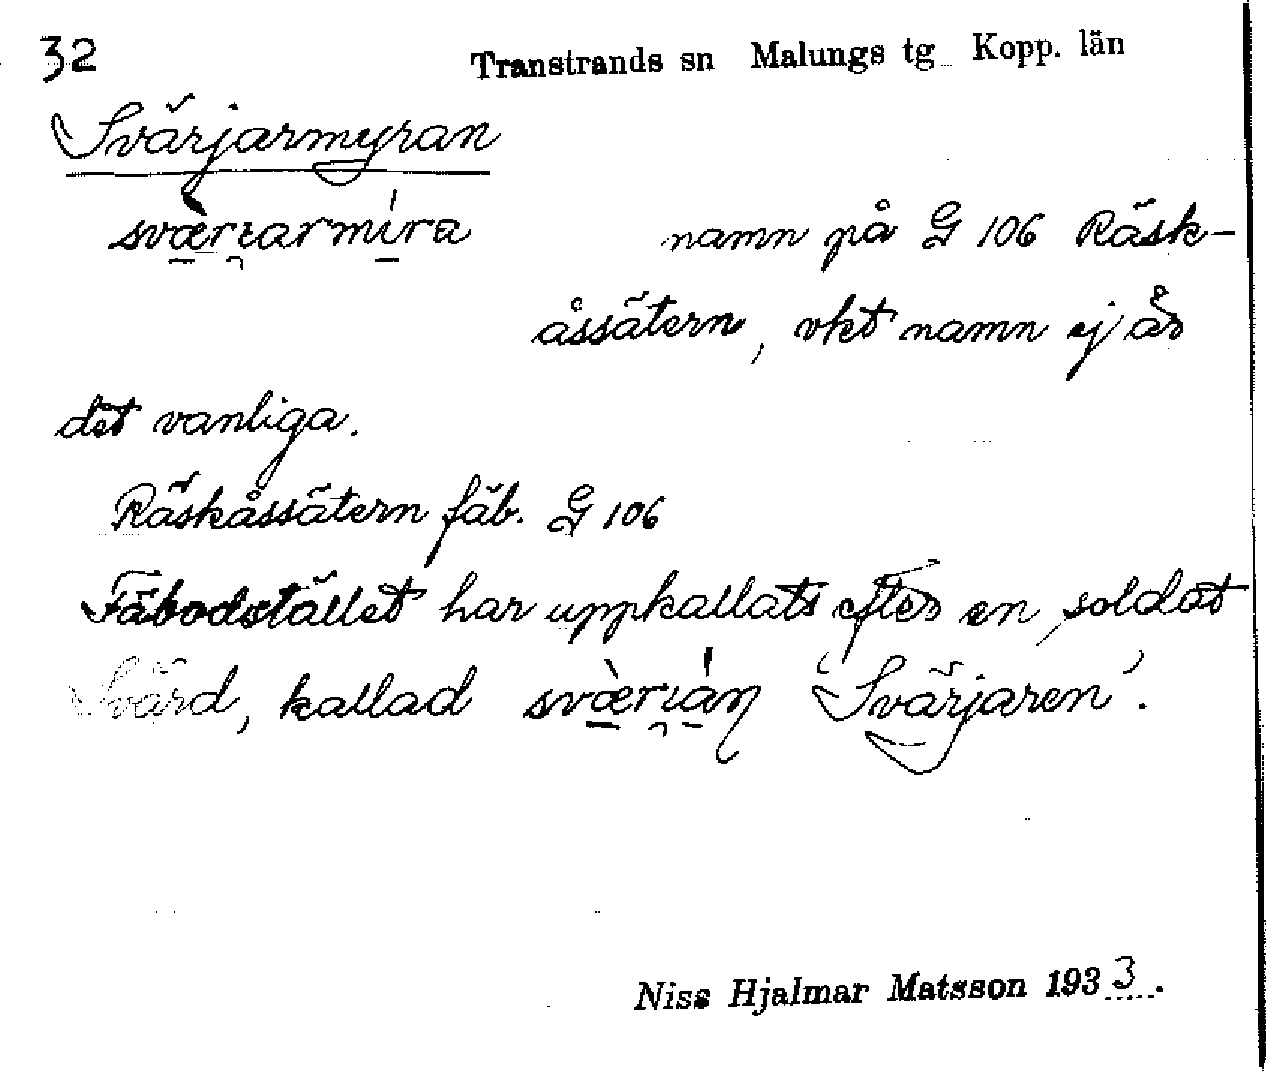 32
Transtrands sn Malungs tg Kopp. län
Svärjarmyran
svæ̀rɪarmíra namn på G 106 Räsk-
åssätern, vket namn ej är
det vanliga.
Räskåssätern fäb. G 106
Fäbodstället har uppkallats efter en soldat
Svärd, kallad svæ̀rɪàn̩ "Svärjaren".
Niss Hjalmar Matsson 1933.